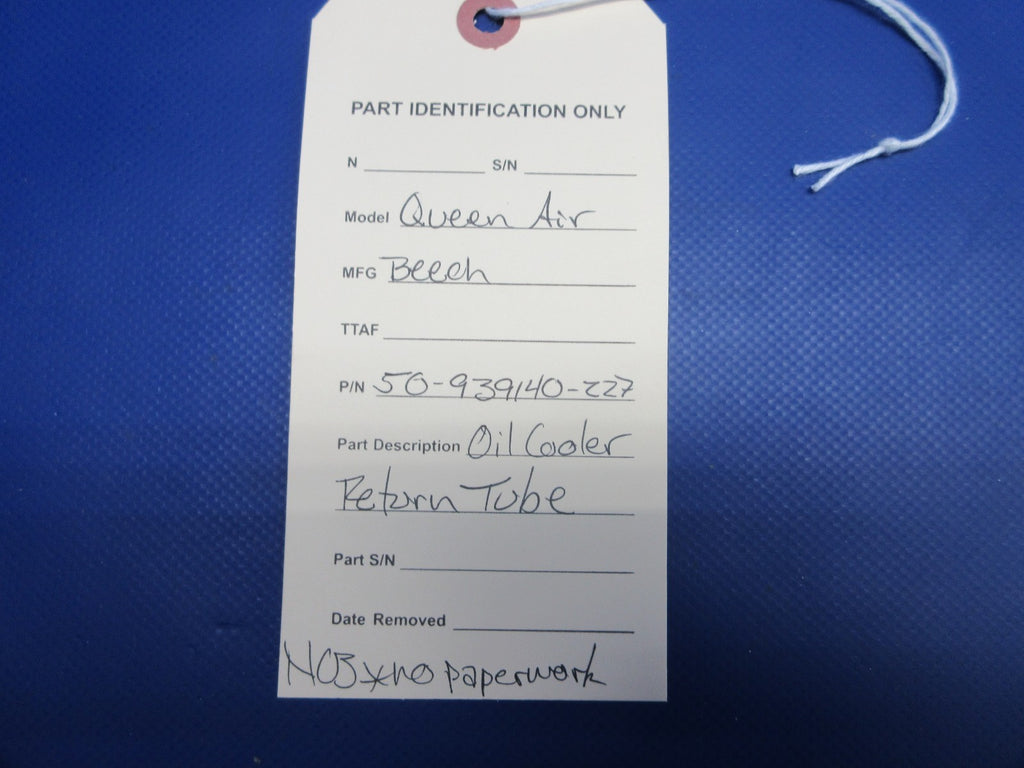 PART IDENTIFICATION ONLY
N S/N
Model Queen Air
MFG Beech
TTAF
P/N 50-939140-227
Part Description Oil Cooler
Return Tube
Part S/N
Date Removed
NOB*no paperwork